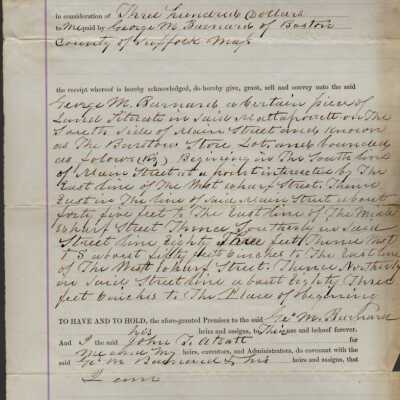 in consideration of Three hundred Dollars
to me paid by George M. Barnard of Boston
County of Suffolk Mass
the receipt whereof is hereby acknowledged, do hereby give, grant, sell and convey unto the said
George M. Barnard a certain piece of
Land Situate in Said Mattapoisett on The
South Side of Main Street and Known
as The Barstow Store Lot and bounded
as folows Begining in The South line
of Main Street at a point intersected by The
East line of The West wharf Street. Thence
East in The line of Said Main Street about
forty five feet to The East line of The
wharf Street Thence Southerly in Said
Street line Eighty Three feet Thence West
about fifty feet inches to The East line
of The West wharf Street. Thence Northerly
in Said Street line about Eighty Three
feet inches to The Place of beginning
TO HAVE AND TO HOLD, the afore-granted Premises to the said Geo M. Barnard
his heirs and assigns, to Their use and behoof forever.
And I the said John T. Atsatt for
me and my heirs, executors, and Administrators, do covenant with the
said Geo M Barnard & his heirs and assigns, that
I am